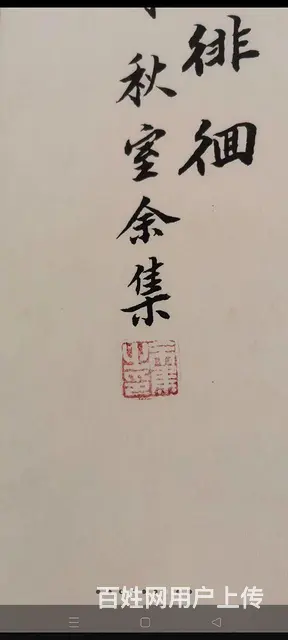 徘徊
秋室余集
百姓网用户上传